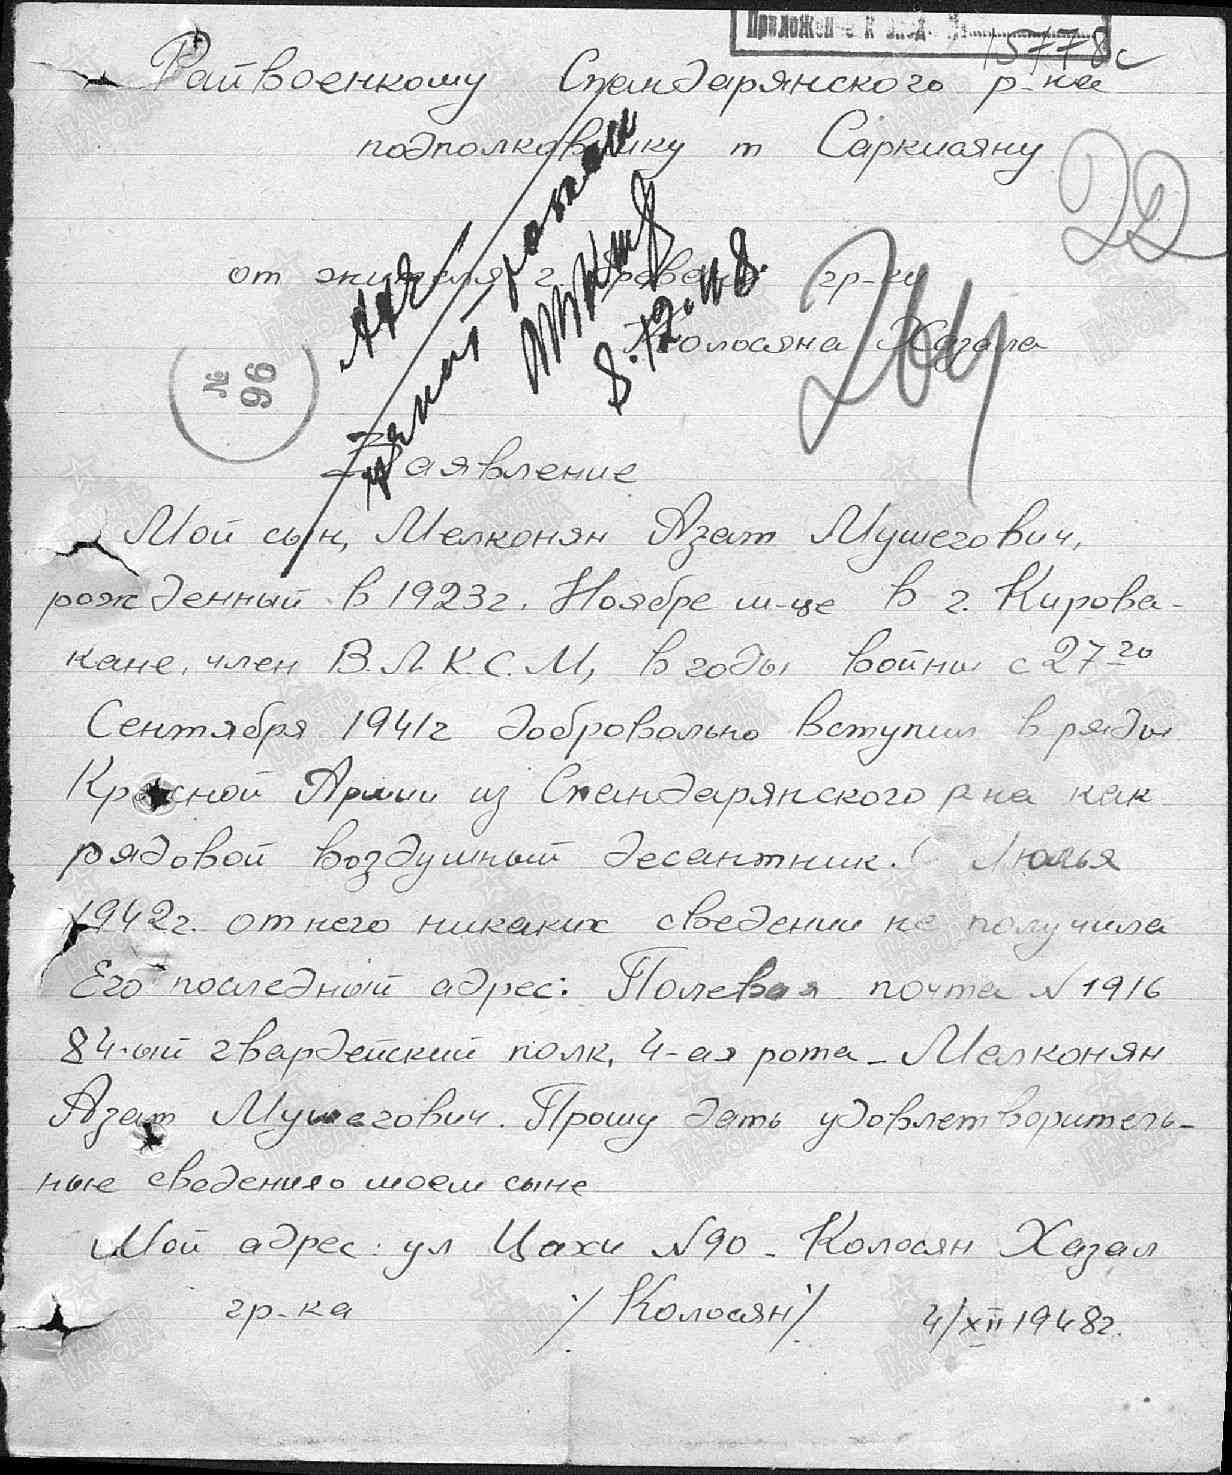 Приложение к вход. №
15778с
Райвоенкому Спандарянского р-на
подполковнику т Саркисяну
22
от жителя г. Еревана гр-ки
Колосяна Хазала
264
8.12.48.
№ 96
Заявление
Мой сын, Мелконян Азат Мушегович,
рожденный в 1923г. Ноябре м-це в г. Кирова-
кане, член В.Л.К.С.М, в годы войны с 27го
Сентября 1941г добровольно вступил в ряды
Красной Армии из Спандарянского р на как
рядовой воздушный десантник. С Июлья
1942г. от него никаких сведении не получила
Его последный адрес: Полевая почта N 1916
84-ый гвардейский полк, 4-ая рота - Мелконян
Азат Мушегович. Прошу дать удовлетворитель-
ные сведения о моем сыне
Мой адрес: ул Цахи N90 - Колосян Хазал
гр-ка /Колосян/ 4/XII 1948г.